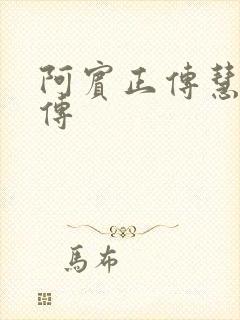 阿賓正傳慧
傳
馬布